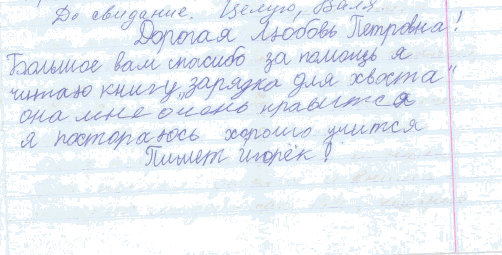 До свидание. Целую, Валя.
Дорогая Любовь Петровна!
Большое вам спасибо за помощь я
читаю книгу „зарядка для хвоста"
она мне очень нравится
я посторaюсь хорошо учится
Пишет игорёк!